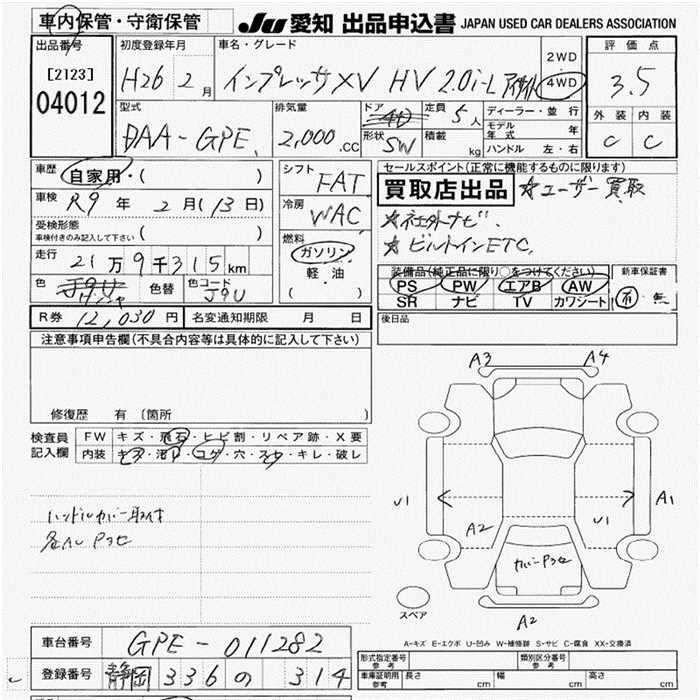 車内保管・守衛保管 JU 愛知 出品申込書 JAPAN USED CAR DEALERS ASSOCIATION
出品番号 初度登録年月 車名・グレード 2WD 評価点
[2123] H26 2月 インプレッサXV HV 2.0i-L アイサイト 4WD 3.5
04012 型式 排気量 ドア 4D 定員 5人 ディーラー・並行 外装 内装
DAA-GPE 2,000.cc 形状 SW 積載 kg モデル年式 年 C C
ハンドル 左・右
車歴 自家用・( ) シフト FAT セールスポイント(正常に機能するものに限ります)
車検 R9年 2月(13日) 冷房 WAC 買取店出品 ★ユーザー買取
受検形態 ★社外ナビ.
車検付きのみ記入して下さい ( ) 燃料 ★ビルトインETC,
走行 21万9千315km ガソリン 装備品(純正品に限り○をつけてください) 新車保証書
色 色替 色コード J9U 軽・油 PS PW エアB AW 否・無
( ) SR ナビ TV カワシート
R券 12,030円 名変通知期限 月 日 後日品
注意事項申告欄(不具合内容等は具体的に記入して下さい)
A3 A4
修復歴 有 〔箇所 〕
検査員 FW キズ・飛石・ヒビ割・リペア跡・X要
記入欄 内装 キズ・汚レ・コゲ・穴・スレ・キレ・破レ
U1 A1
ハンドルカバー取付 A2 U1
カバーPタセ
スペア
A2
A-キズ E-エクボ U-凹み W-補修跡 S-サビ C-腐食 XX-交換済
車台番号 GPE-011282
形式指定番号 参考 類別区分番号 参考
登録番号 静岡 336 の 314 車庫証明用 参考 長さ cm 幅 cm 高さ cm